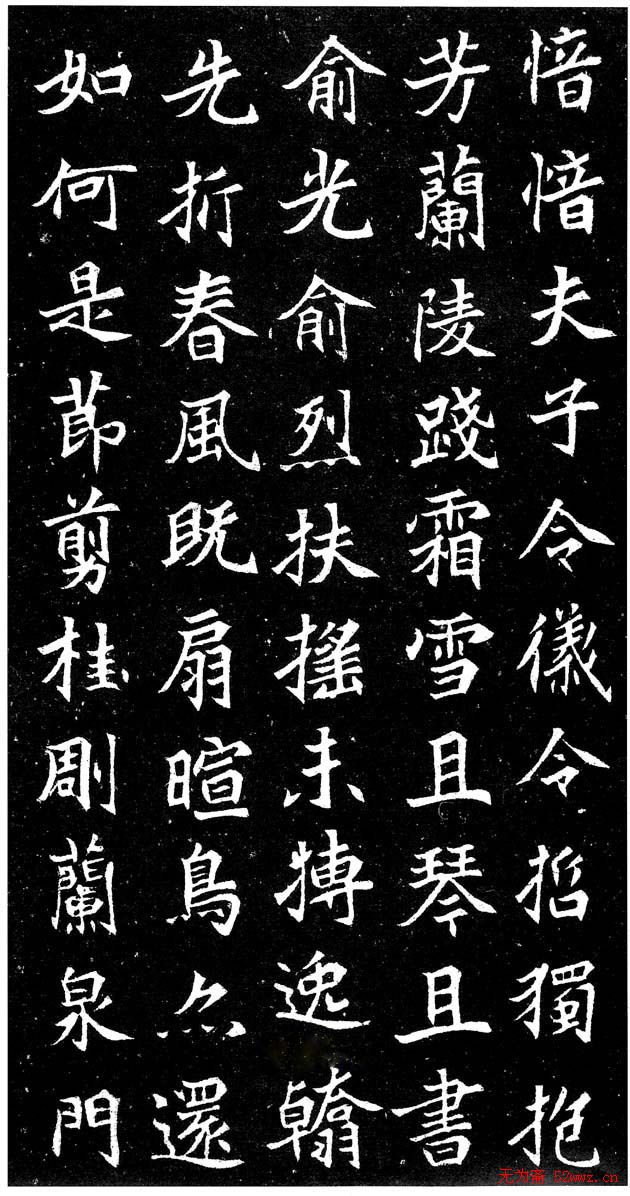 愔愔夫子令儀令哲獨抱
芳蘭陵踐霜雪且琴且書
俞光俞烈扶搖未搏逸翰
先折春風既扇暄鳥亦還
如何是莭剪桂㓮蘭泉門
无为斋 52wwz.cn